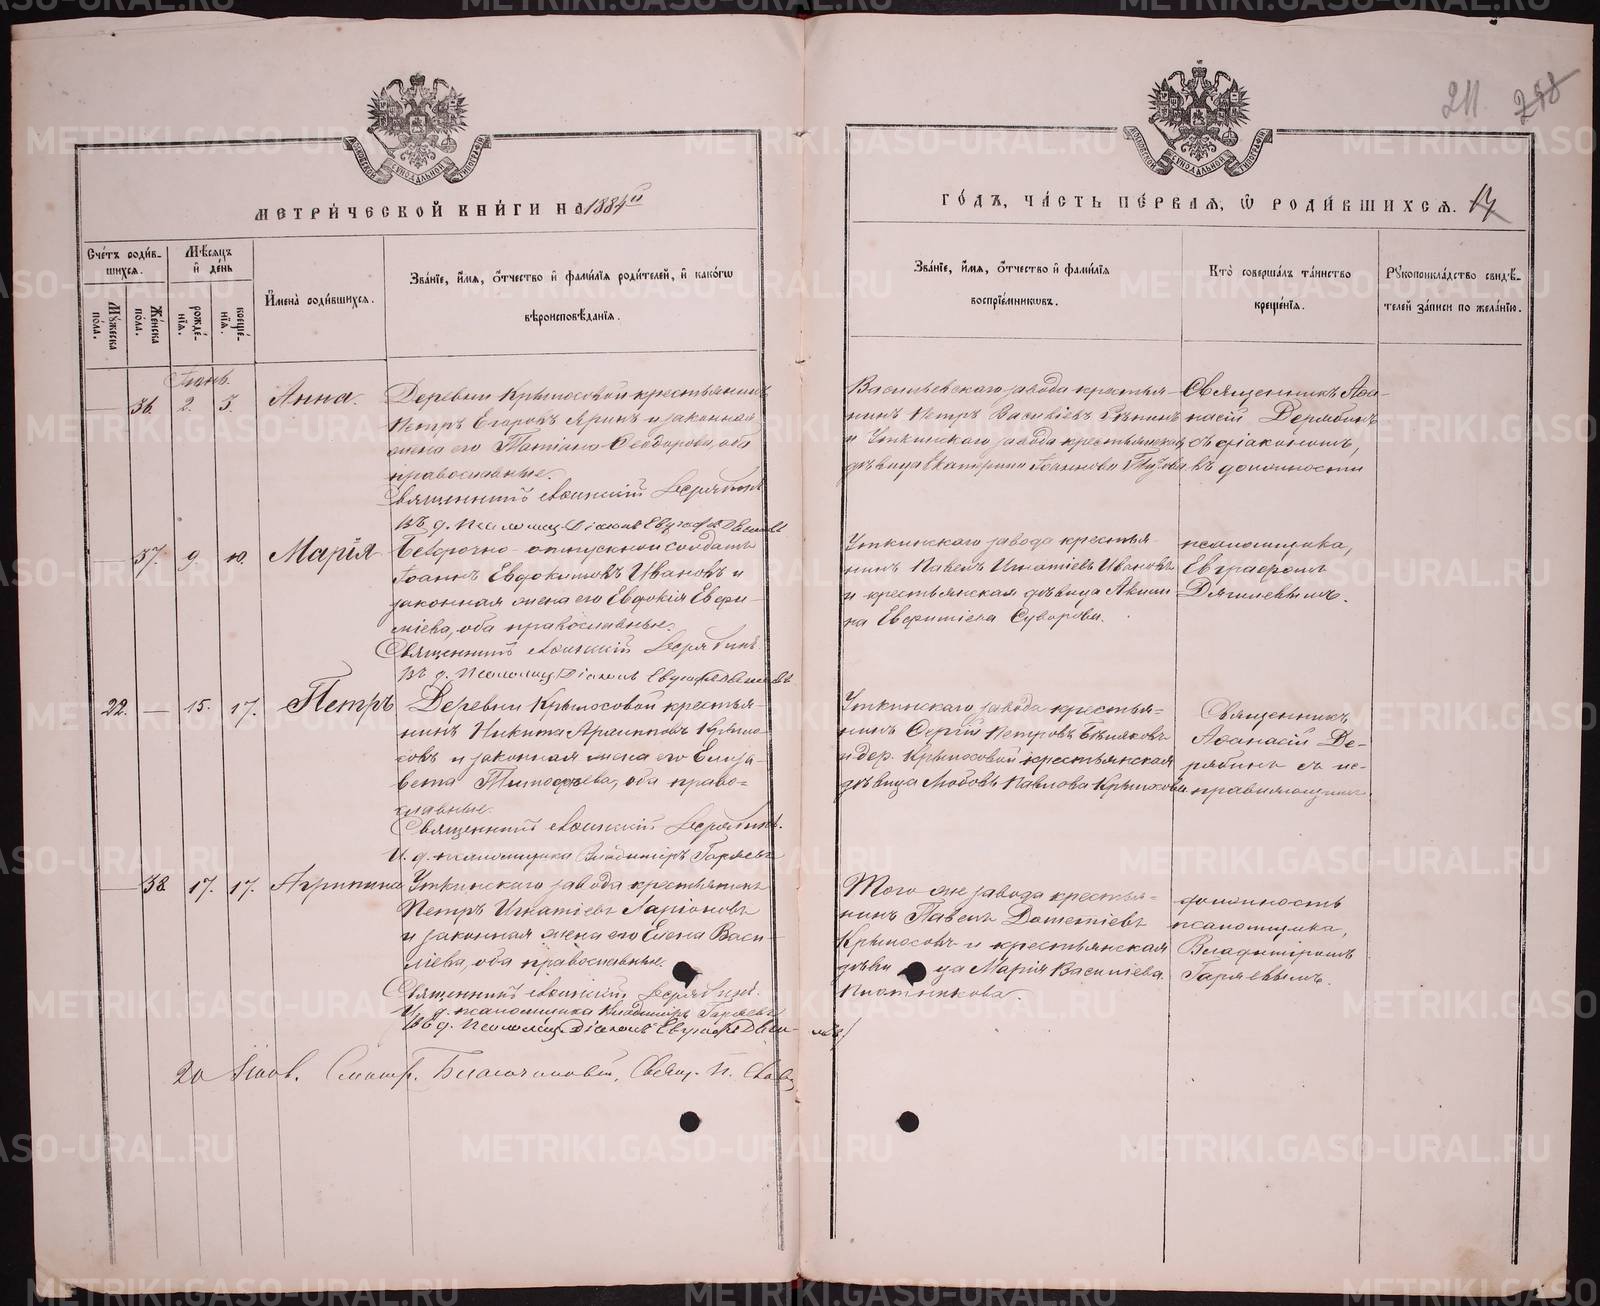 211. 218
МЕТРИ́ЧЕСКОЙ КНИ́ГИ НА 1884й
ГО́ДЪ, ЧА́СТЬ ПЕ́РВАЯ, Ѡ РОДИ́ВШИХСЯ. 17
Сче́тъ роди́в-
шихся.
Мѣсяцъ
и҆ де́нь
Мꙋ́жеска
по́ла.
Же́нска
по́ла.
рожде́-
нїя.
креще́-
нїя.
И҆мена̀ роди́вшихся.
Зва́нїе, и҆́мя, ѻ҆́тчество и҆ фами́лїя роди́телей, и҆ како́гѡ
вѣроисповѣ́данїя.
Зва́нїе, и҆́мя, ѻ҆́тчество и҆ фами́лїя
воспрїе́мниковъ.
Кто̀ соверша́лъ та́инство
креще́нїя.
Рꙋкоприкла́дство свидѣ́-
телей за́писи по жела́нїю.
Іюнь.
— 36. 2. 3. Анна.
Деревни Крылосовой крестьянинъ
Петръ Егоровъ Яринъ и законная
жена его Татіана Ѳеодорова, оба
православные.
Священникъ Аѳанасій Дерябинъ
Въ д. Псаломщ. Діаконъ Евграфъ
Васильевскаго завода крестья-
нинъ Петръ Василіевъ
и Уткинскаго завода крестьянская
дѣвица Екатерина Іоаннова
Священникъ Аѳа-
насій Дерябинъ
съ діакономъ,
въ должности
— 37. 9. 10. Марія
Безсрочно-отпускной солдатъ
Іоаннъ Евдокимовъ Ивановъ и
законная жена его Евдокія Евѳи-
міева, оба православные.
Священникъ Аѳанасій Дерябинъ.
Въ д. Псаломщ. Діаконъ Евграфъ
Уткинскаго завода крестья-
нинъ Павелъ Игнатіевъ Ивановъ
и крестьянская дѣвица Акили-
на Евѳиміева Суворова.
псаломщика,
Евграфомъ
Дягилевымъ.
22. — 15. 17. Петръ
Деревни Крылосовой крестья-
нинъ Никита Крыло-
совъ и законная жена его Елиза-
вета Тимоѳеева, оба право-
славные.
Священникъ Аѳанасій Дерябинъ.
И. д. псаломщика Владиміръ Гаряевъ
Уткинскаго завода крестья-
нинъ Сергій Петровъ Бѣляковъ
и дер. Крылосовой крестьянская
дѣвица Любовь Павлова Крылосова
Священникъ
Аѳанасій Де-
рябинъ съ ис-
правляющимъ
— 38. 17. 17. Агрипина
Уткинскаго завода крестьянинъ
Петръ Игнатіевъ Ларіоновъ
и законная жена его Елена Васи-
ліева, оба православные.
Священникъ Аѳанасій Дерябинъ.
И. д. псаломщика Владиміръ Гаряевъ
Въ д. Псаломщ. Діаконъ Евграфъ
Того же завода крестья-
нинъ Павелъ Дометіевъ
Крылосовъ и крестьянская
дѣвица Марія Василіева
Плотникова.
должность
псаломщика,
Владиміромъ
Гаряевымъ.
Смотр. Благочинный, Свящ. П.